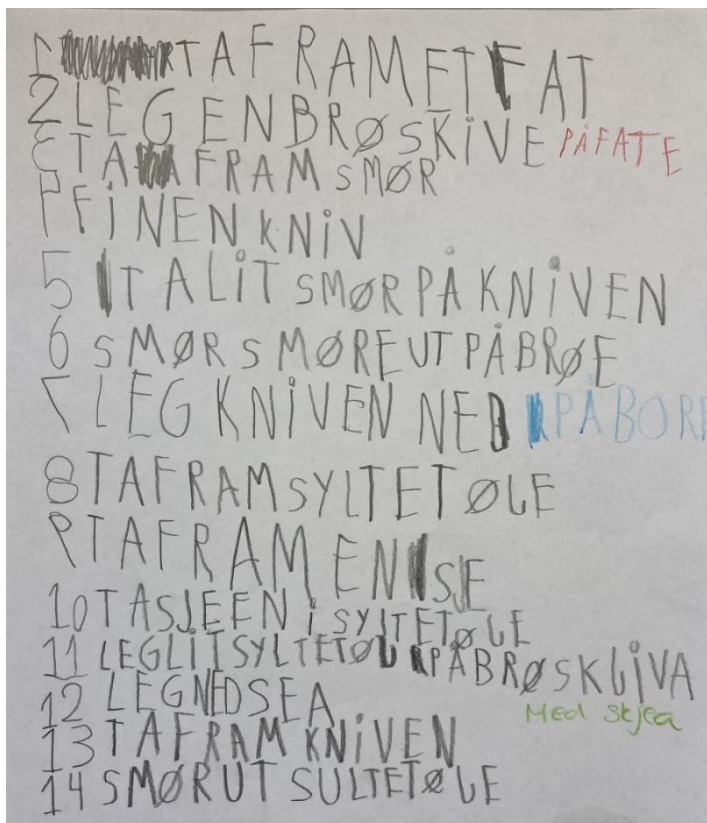 1 TAFRAMETFAT
2 LEGENBRØSKIVE PÅFATE
3 TAFRAMSMØR
4 FINENKNIV
5 TALITSMØRPÅKNIVEN
6 SMØRSMØREUTPÅBRØE
7 LEGKNIVENNED PÅBORE
8 TAFRAMSYLTETØLE
9 TAFRAMENSJE
10 TASJEENISYLTETØLE
11 LEGLITSYLTETØL PÅBRØSKLIVA
12 LEGNEDSEA
Med skjea
13 TAFRAMKNIVEN
14 SMØRUTSULTETØLE